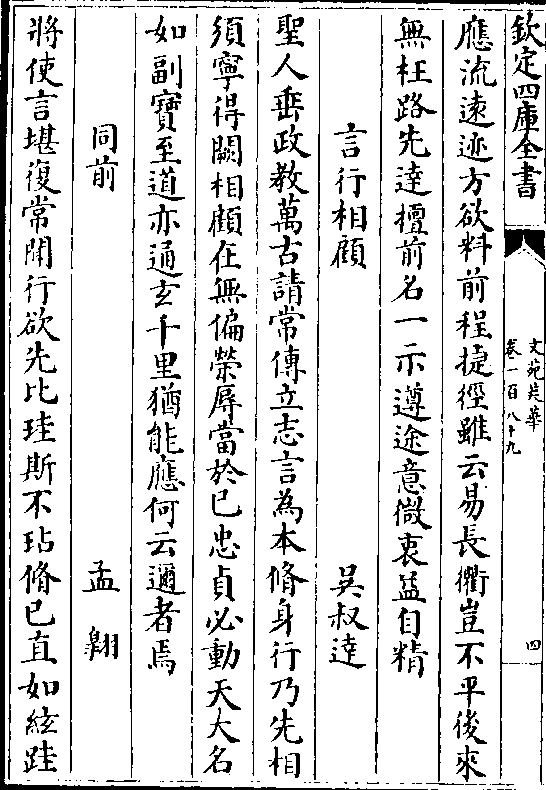 欽定四庫全書
文苑英華
卷一百八十九
四
應流遠迹方欲料前程捷徑雖云易長衢豈不平後來
無枉路先達擅前名一示遵途意微衷益自精
言行相顧
吳叔達
聖人垂政教萬古請常傳立志言為本脩身行乃先相
須寧得闕相顧在無偏榮辱當於己忠貞必動天大名
如副寶至道亦通玄千里猶能應何云邇者焉
同前
孟翱
將使言堪復常聞行欲先比珪斯不玷脩已直如絃跬